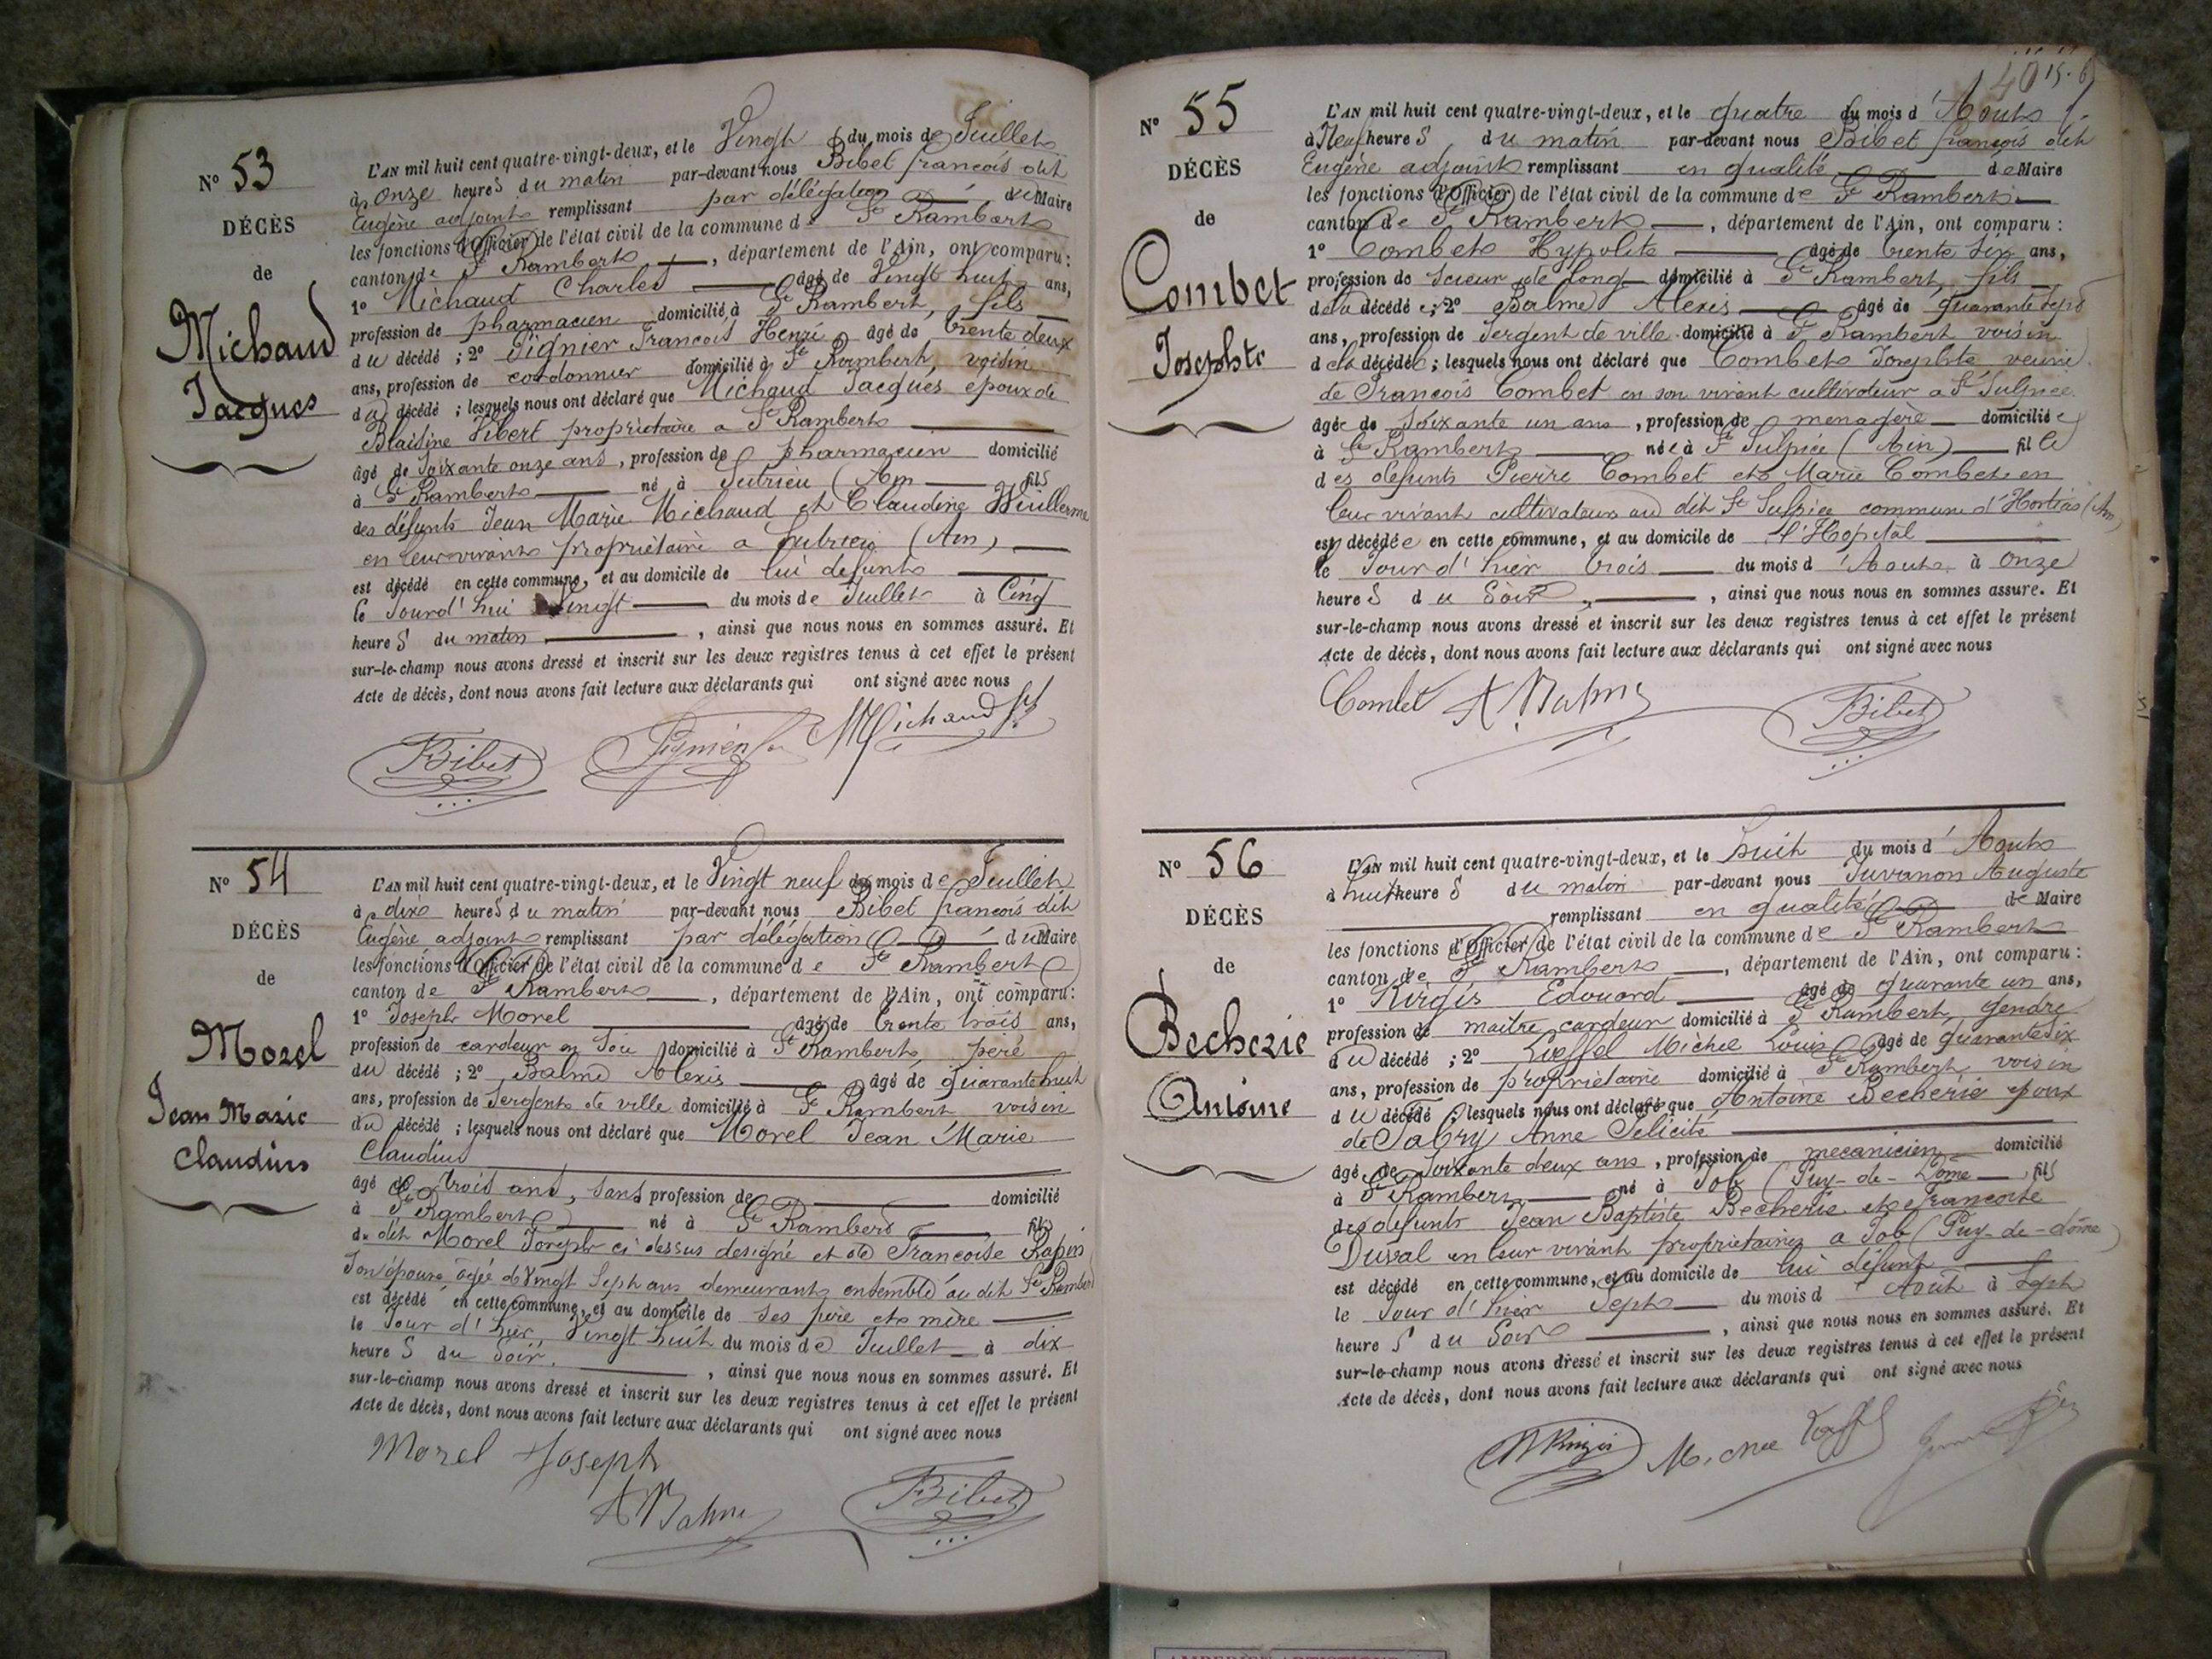 N° 53
DÉCÈS
de
Michaud
Jacques
L'AN mil huit cent quatre-vingt-deux, et le Vingt du mois de Juillet
à onze heures du matin par-devant nous Bibet françois dit
Eugène adjoint remplissant par délégation du Maire
les fonctions d'Officier de l'état civil de la commune de St Rambert
canton de St Rambert, département de l'Ain, ont comparu :
1° Michaud Charles âgé de Vingt huit ans,
profession de pharmacien domicilié à St Rambert, fils
du décédé ; 2° Pignier François Henri âgé de trente deux
ans, profession de cordonnier domicilié à St Rambert, voisin
du décédé ; lesquels nous ont déclaré que Michaud Jacques époux de
Blaisine Vibert propriétaire a St Rambert
âgé de Soixante onze ans, profession de pharmacien domicilié
à St Rambert né à Sutrieu (Ain fils
des défunts Jean Marie Michaud et Claudine Wuillerme
en leur vivant propriétaire a Sutrieu (Ain)
est décédé en cette commune, et au domicile de lui defunt
le Jourd'hui Vingt du mois de Juillet à Cinq
heures du matin, ainsi que nous nous en sommes assuré. Et
sur-le-champ nous avons dressé et inscrit sur les deux registres tenus à cet effet le présent
Acte de décès, dont nous avons fait lecture aux déclarants qui ont signé avec nous
Bibet Pignier Michaud fils
N° 54
DÉCÈS
de
Morel
Jean Marie
Claudius
L'AN mil huit cent quatre-vingt-deux, et le Vingt neuf du mois de Juillet
à dix heures du matin par-devant nous Bibet françois dit
Eugène adjoint remplissant par délégation du Maire
les fonctions d'Officier de l'état civil de la commune de St Rambert
canton de St Rambert, département de l'Ain, ont comparu :
1° Joseph Morel âgé de trente trois ans,
profession de cardeur en Soie domicilié à St Rambert, père
du décédé ; 2° Balme Alexis âgé de quarante huit
ans, profession de Sergent de ville domicilié à St Rambert voisin
du décédé ; lesquels nous ont déclaré que Morel Jean Marie
Claudius
âgé de trois ans, sans profession de domicilié
à St Rambert né à St Rambert fils
du dit Morel Joseph ci dessus designé et de Francoise Rapin
Son épouse âgée de vingt Sept ans demeurant ensemble au dit St Rambert
est décédé en cette commune, et au domicile de ses père et mère
le Jour d'hier, Vingt huit du mois de Juillet à dix
heures du Soir, ainsi que nous nous en sommes assuré. Et
sur-le-champ nous avons dressé et inscrit sur les deux registres tenus à cet effet le présent
Acte de décès, dont nous avons fait lecture aux déclarants qui ont signé avec nous
Morel Joseph
A Balme Bibet
40
N° 55
DÉCÈS
de
Combet
Josephte
L'AN mil huit cent quatre-vingt-deux, et le quatre du mois d'Aout
à Neuf heures du matin par-devant nous Bibet françois dit
Eugène adjoint remplissant en qualité de Maire
les fonctions d'Officier de l'état civil de la commune de St Rambert
canton de St Rambert, département de l'Ain, ont comparu :
1° Combet Hypolite âgé de trente six ans,
profession de scieur de long domicilié à St Rambert, fils
de la décédée ; 2° Balme Alexis âgé de quarante sept
ans, profession de Sergent de ville domicilié à St Rambert voisin
de la décédée ; lesquels nous ont déclaré que Combet Josephte, veuve
de François Combet en son vivant cultivateur a St Sulpice
âgée de Soixante un ans, profession de menagère domiciliée
à St Rambert née à St Sulpice (Ain) fille
des defunts Pierre Combet et Marie Combet en
leur vivant cultivateurs au dit St Sulpice commune d'Hortias (Ain)
est décédée en cette commune, et au domicile de l'Hopital
le Jour d'hier trois du mois d'Aout à onze
heures du Soir, ainsi que nous nous en sommes assure. Et
sur-le-champ nous avons dressé et inscrit sur les deux registres tenus à cet effet le présent
Acte de décès, dont nous avons fait lecture aux déclarants qui ont signé avec nous
Combet A Balme Bibet
N° 56
DÉCÈS
de
Becherie
Antoine
L'AN mil huit cent quatre-vingt-deux, et le huit du mois d'Aout
à huit heures du matin par-devant nous Juvanon Auguste
remplissant en qualité de Maire
les fonctions d'Officier de l'état civil de la commune de St Rambert
canton de St Rambert, département de l'Ain, ont comparu :
1° Kirgis Edouard âgé de quarante un ans,
profession de maitre cardeur domicilié à St Rambert, gendre
du décédé ; 2° Loeffel Michel Louis âgé de quarante six
ans, profession de propriétaire domicilié à St Rambert voisin
du décédé ; lesquels nous ont déclaré que Antoine Becherie époux
de Fabry Anne Félicité
âgé de Soixante deux ans, profession de mecanicien domicilié
à St Rambert né à Job (Puy-de-Dome fils
des defunts Jean Baptiste Becherie et francoise
Duval en leur vivant propriétaires a Job (Puy-de-dome)
est décédé en cette commune, et au domicile de lui défunt
le Jour d'hier Sept du mois d'Aout à Sept
heures du Soir, ainsi que nous nous en sommes assuré. Et
sur-le-champ nous avons dressé et inscrit sur les deux registres tenus à cet effet le présent
Acte de décès, dont nous avons fait lecture aux déclarants qui ont signé avec nous